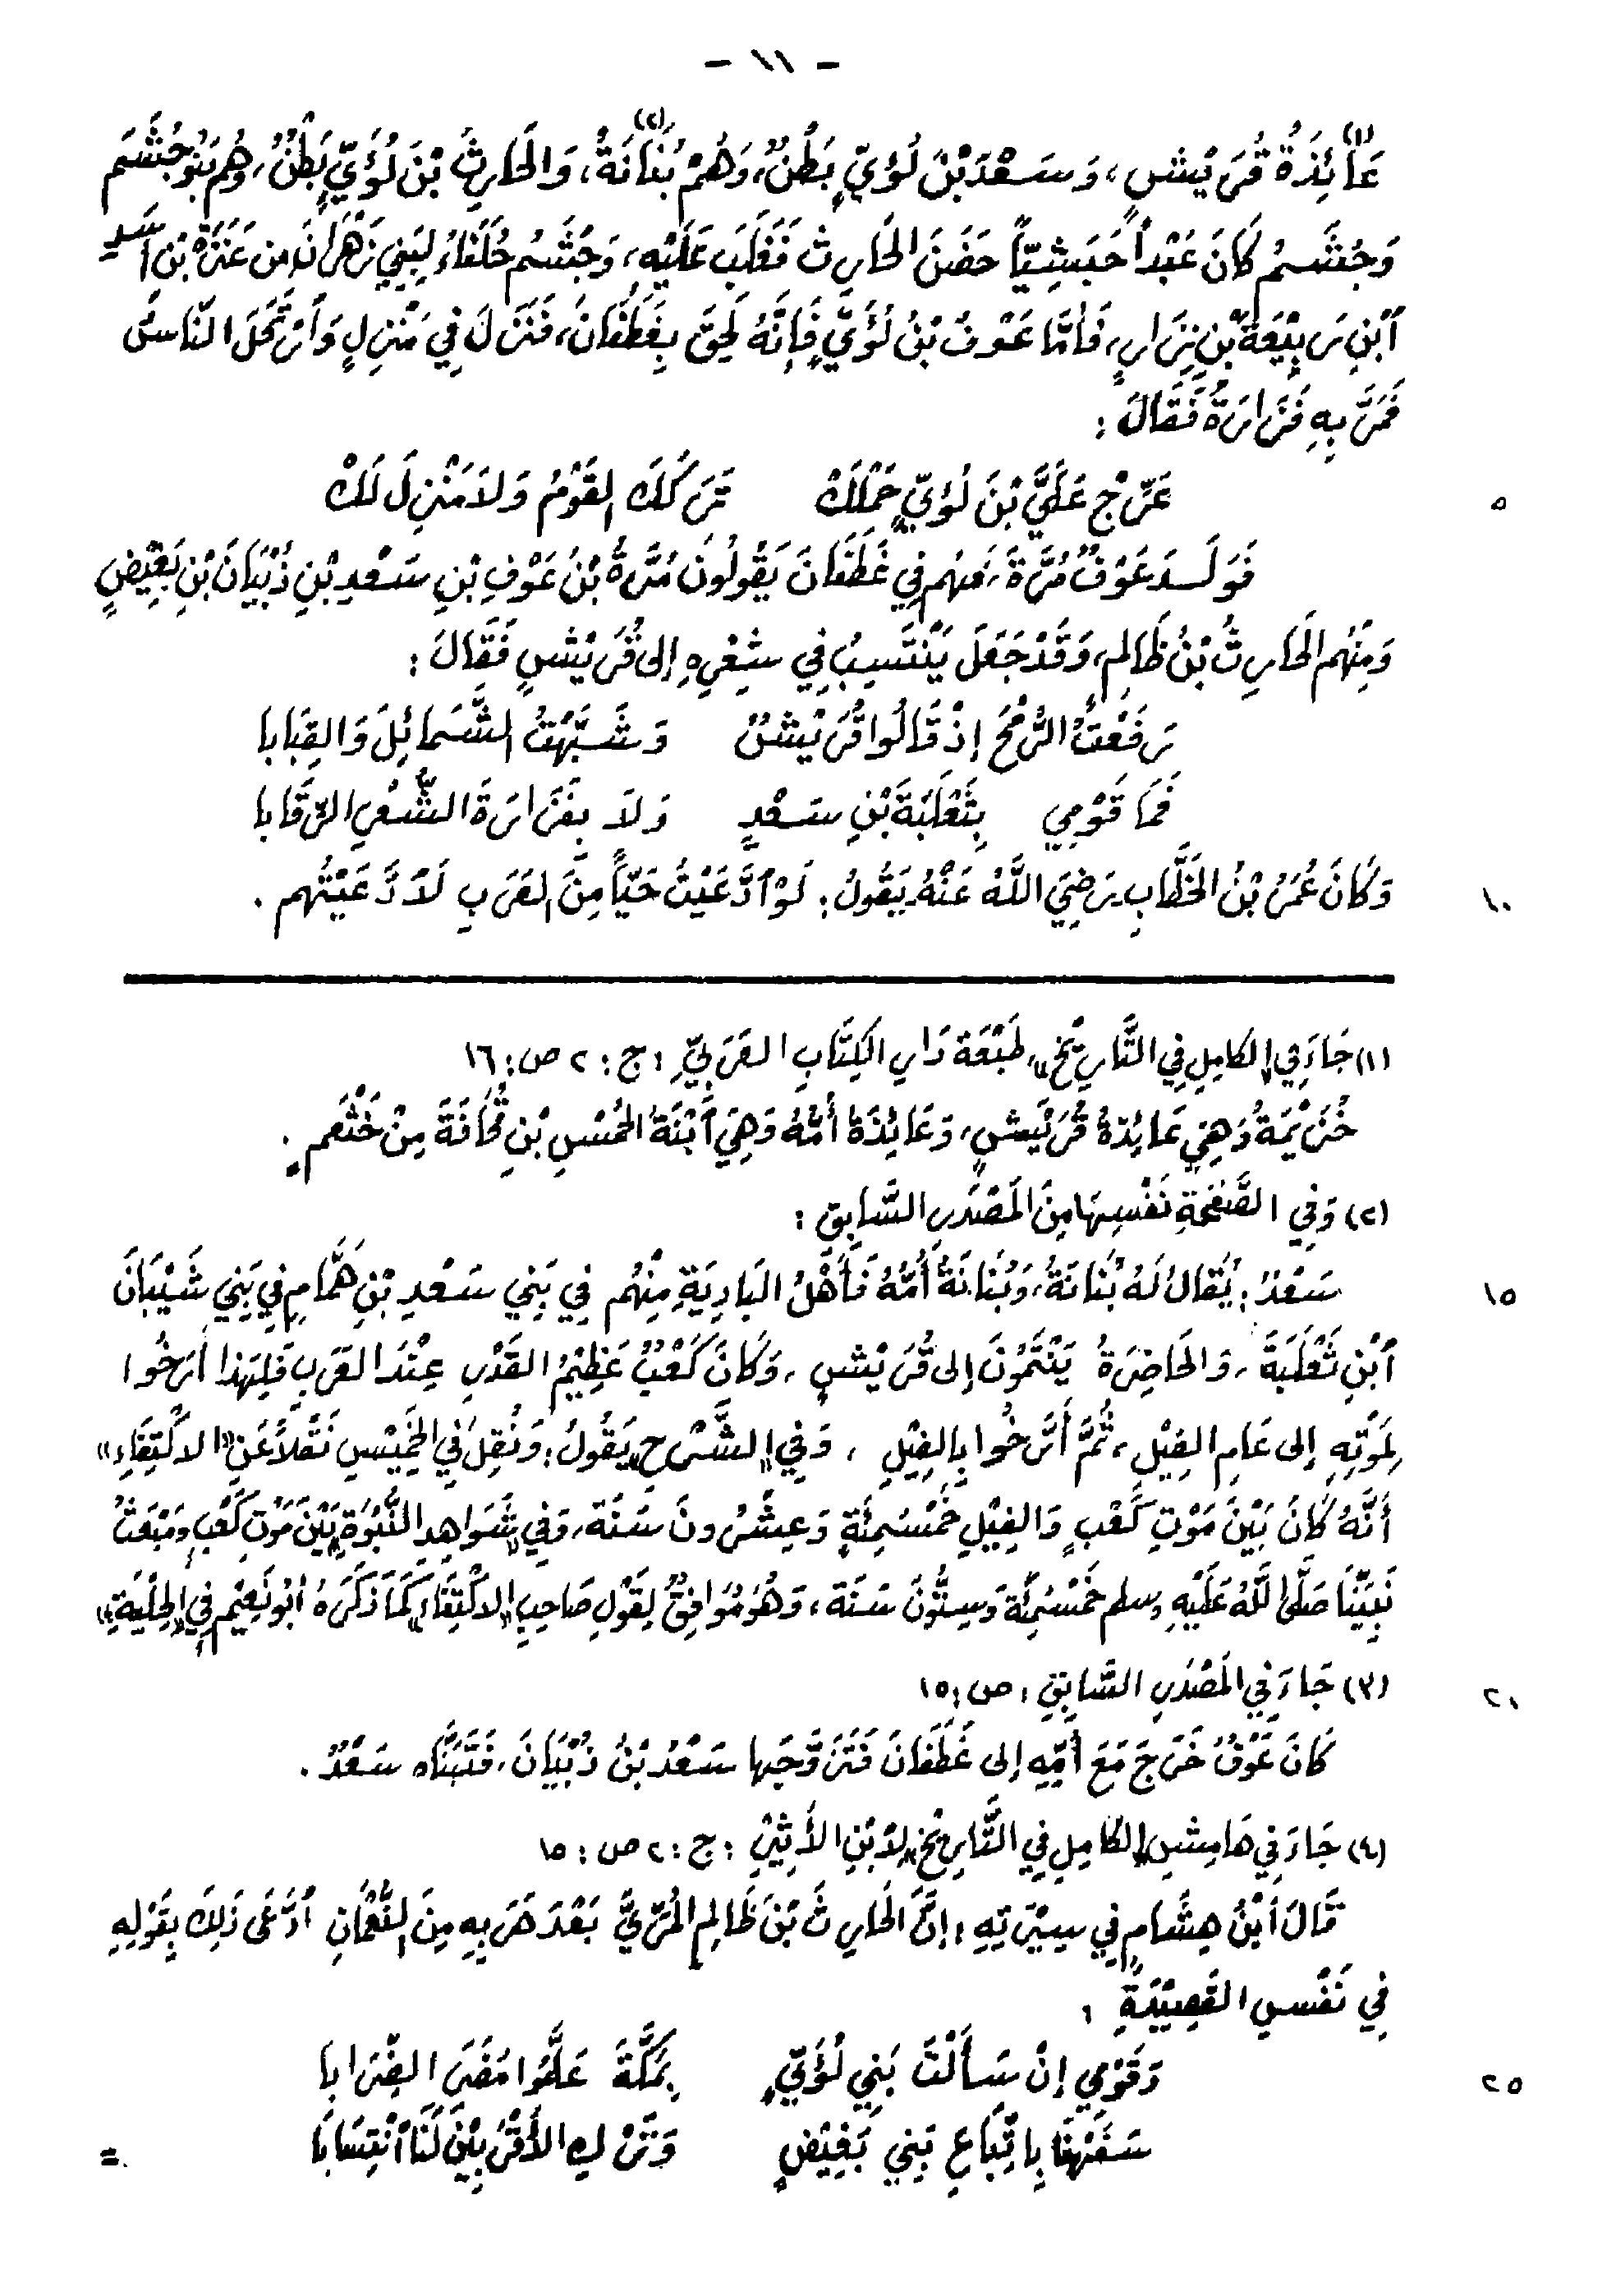 - ١١ -
(١)
عَائِذَةُ قُرَيْشٍ، وَسَعْدَ بْنَ لُؤَيٍّ بَطْنٌ، وَهُمْ بُنَانَةُ (٢)، وَالحَارِثَ بْنَ لُؤَيٍّ بَطْنٌ، وَهُم بَنُو جُشَم
وَجُشَمُ كَانَ عَبْداً حَبَشِيّاً حَضَنَ الحَارِثَ فَغَلَبَ عَلَيْهِ، وَجُشَمُ حُلَفَاءُ لِبَنِي هَزَّانَ مِن عَنَزَةَ بْنِ أَسَدِ
ٱبْنِ رَبِيْعَةَ بْنِ نِزَارٍ، فَأمَّا عَوْفُ بْنُ لُؤَيٍّ فَإِنَّهُ لَحِقَ بِغَطَفَانَ، فَنَزَلَ فِي مَنْزِلٍ وَٱرْتَحَلَ النَّاسُ
فَمَرَّ بِهِ فَزَارَةُ فَقَالَ :
عَرِّجْ عَلَيَّ بْنَ لُؤَيٍّ جَمَلَكْ    تَرَكَكَ القَوْمُ وَلاَ مَنْزِلَ لَكْ
٥
فَوَلَدَ عَوْفٌ مُرَّةَ، فَهُم فِي غَطَفَانَ يَقُولُونَ مُرَّةُ بْنُ عَوْفِ بْنِ سَعْدِ بْنِ ذُبْيَانَ بْنِ بَغِيْضٍ
وَمِنْهُم الحَارِثُ بْنُ ظَالِمٍ، وَقَدْ جَعَلَ يَنْتَسِبُ فِي شِعْرِهِ إِلى قُرَيْشٍ فَقَالَ :
رَفَعْتُ الرُّمْحَ إِذْ قَالُوا قُرَيْشٌ    وَشَبَّهْتُ الشَّمائِلَ وَالقِبَابا
فَمَا قَوْمِي بِثَعْلَبَةَ بْنِ سَعْدٍ    وَلاَ بِفَزَارَةَ الشُّعْرِ الرِّقَابا
وَكَانَ عُمَرُ بْنُ الخَطَّابِ رَضِيَ اللَّهُ عَنْهُ يَقُولُ : لَوْ ٱدَّعَيْتُ حَيّاً مِنَ العَرَبِ لاَدَّعَيْتُهم .
١٠
(١) جَاءَ فِي «الكامِلِ فِي التَّارِيْخِ» طَبْعَةِ دَارِ الكِتَابِ العَرَبِيِّ : ج : ٢ ص : ١٦
خُزَيْمَةُ وَهِيَ عَائِذَةُ قُرَيْشٍ، وَعَائِذَةُ أُمُّهُ وَهِيَ ٱبْنَةُ الخِمْسِ بْنِ قُحَافَةَ مِنْ خَثْعَمٍ .
(٢) وَفِي الصَّفْحَةِ نَفْسِهَا مِنَ المَصْدَرِ السَّابِقِ :
سَعْدٌ : يُقَالُ لَهُ بُنَانَةُ، وَبُنَانَةُ أُمُّهُ فَأَهْلُ البَادِيَةِ مِنْهُم فِي بَنِي سَعْدِ بْنِ هَمَّامٍ فِي بَنِي شَيْبَانَ
١٥
ٱبْنِ ثَعْلَبَةَ، وَالحَاضِرَةُ يَنْتَمُونَ إِلى قُرَيْشٍ، وَكَانَ كَعْبٌ عَظِيْمُ القَدْرِ عِنْدَ العَرَبِ فَلِهَذا أرَّخُوا
لِمَوْتِهِ إِلى عَامِ الفِيْلِ، ثُمَّ أَرَّخُوا بِالفِيْلِ ، وَفِي «الشَّرْحِ» يَقُولُ : وَنُقِلَ فِي الخَمِيْسِ نَقْلاً عَنِ «الاكْتِفَاءِ»
أَنَّهُ كَانَ بَيْنَ مَوْتِ كَعْبٍ وَالفِيْلِ خَمْسُمِئَةٍ وَعِشْرُونَ سَنَة، وَفِي «شَوَاهِدِ النُّبُوَةِ» بَيْنَ مَوْتِ كَعْبٍ وَمَبْعَثِ
نَبِيِّنَا صَلَّى اللَّهُ عَلَيْهِ وسلم خَمْسُمِئَة وَسِتُّونَ سَنَة، وَهُوَ مُوَافِقٌ لِقَوْلِ صَاحِبِ «الاكْتِفَاءِ» كَمَا ذَكَرَهُ أبُو نُعَيْمٍ فِي «الحِلْيَةِ»
(٣) جَاءَ فِي المَصْدَرِ السَّابِقِ : ص : ١٥
٢٠
كَانَ عَوْفُ خَرَجَ مَعَ أُمِّهِ إِلى غَطَفَانَ فَتَزَوَّجَها سَعْدُ بْنُ ذُبْيَانَ، فَتَبَنَّاه سَعْدٌ .
(٤) جَاءَ فِي هَامِشِ «الكامِلِ فِي التَّارِيْخِ» لاِبْنِ الأَثِيْرِ : ج : ٢ ص : ١٥
قَالَ ٱبْنُ هِشَامٍ فِي سِيْرَتِهِ : إِنَّ الحَارِثَ بْنَ ظَالِمٍ المُرِّيَّ بَعْدَ هَرَبِهِ مِنَ النُّعْمَانِ ٱدَّعَى ذَلِكَ بِقَوْلِهِ
فِي نَفْسِ القَصِيْدَةِ :
وَقَوْمِي إِنْ سَأَلْتَ بَنِي لُؤَيٍّ    بِمَكَّةَ عَلَّمُوا مُضَرَ الضِّرَابا
٢٥
سَفِهْنَا بِاتِّبَاعِ بَنِي بَغِيْضٍ    وَتَرْكِ الأَقْرَبِيْنَ لَنَا ٱنْتِسَابَا
=